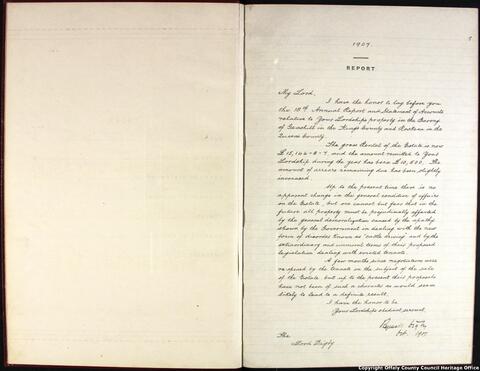 1907.
REPORT
My Lord,
I have the honor to lay before you
the 18th Annual Report and Statement of Accounts
relative to Your Lordships property in the Barony
of Geashill in the Kings County and in the
Queens County.
The gross Rental of the Estate is now
and the amount remitted to Your
Lordship during the year has been £10,500. The
amount of arrears remaining due has been slightly
increased.
Up to the present time there is no
apparent change in the general condition of affairs
on the Estate, but one cannot but fear that in the
future all property must be prejudicially affected
by the general demoralization caused by the apathy
shown by the Government in dealing with the new
form of disorder known as "cattle driving" and by the
extraordinary and unusual terms of their proposed
legislation dealing with evicted tenants.
A few months since negotiations were
re-opened by the tenants on the subject of the sale
of the Estate but up to the present their proposals
have not been of such a character as would seem
likely to lead to a definite result.
I have the honor to be
Your Lordships obedient servant
Digby
1907
The
Lord Digby
Copyright Offaly County Council Heritage Office